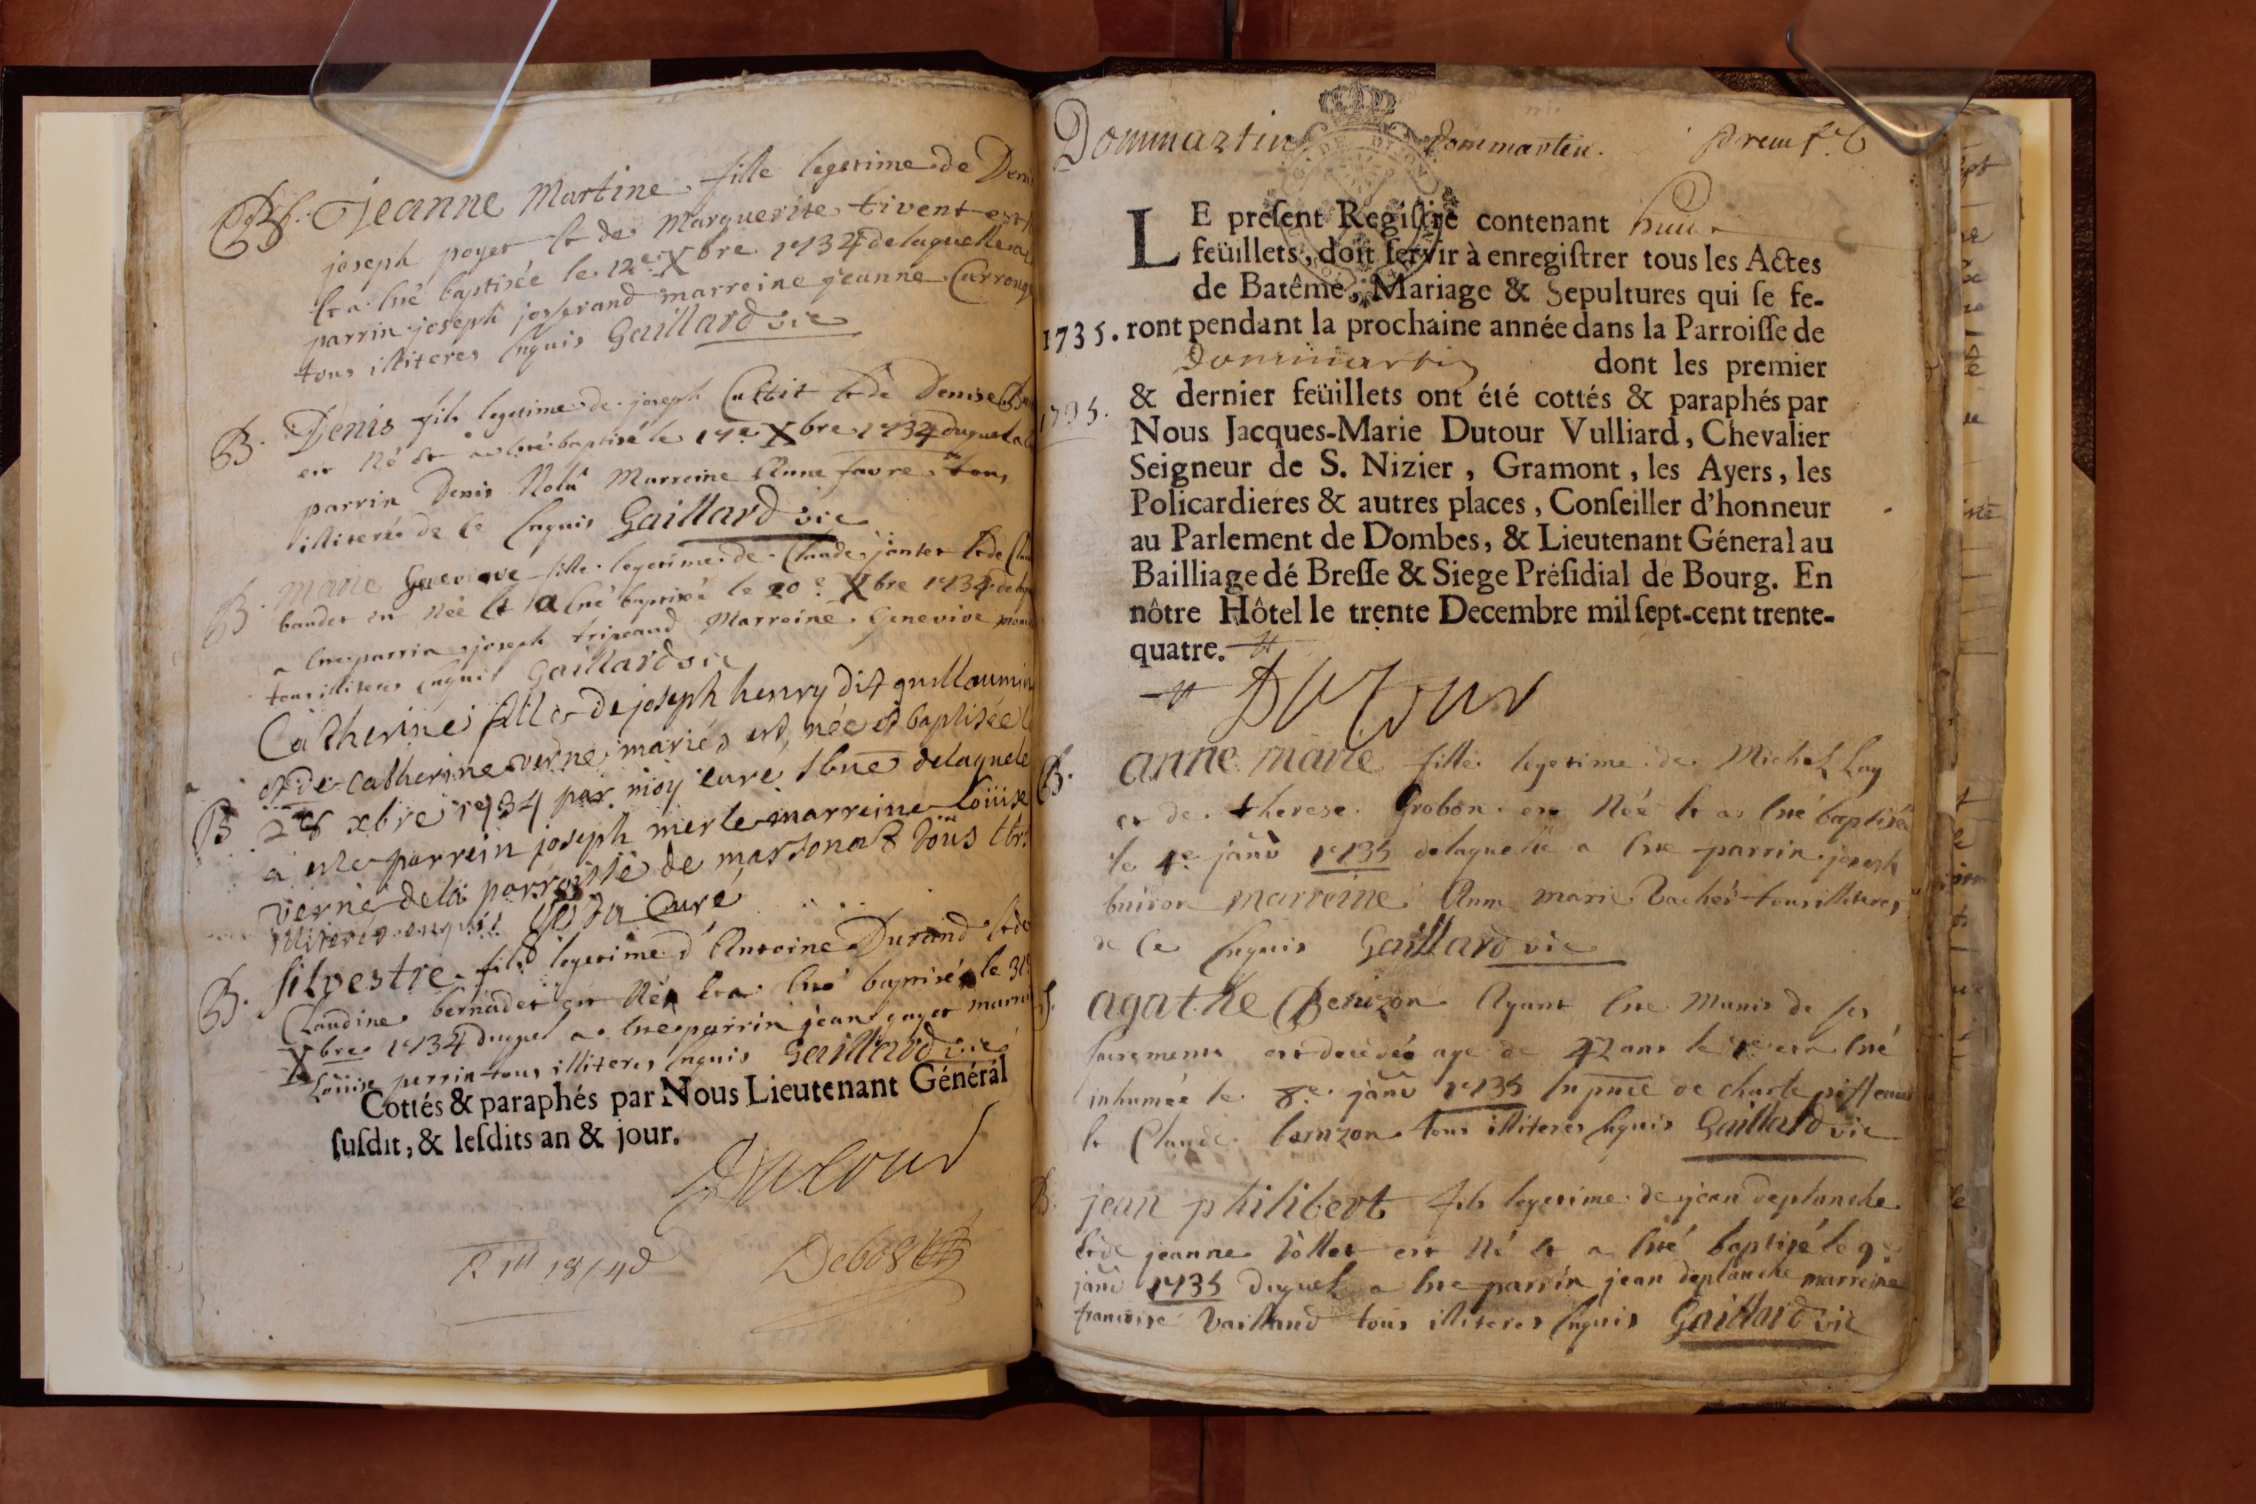 B. Jeanne Martine fille legetime de Deni
joseph poyet et de Marguerite tivent est
et a été baptisée le 12e Xbre 1734 de laquelle a
parrin joseph josserand marreine jeanne Carrouge
tous illiteres enquis Gaillard vic
B. Denis fils legetime de joseph Cultit et de Denise
est Né et a été baptisé le 17e Xbre 1734 duquel a
parrin Denis Marreine Anne favre tous
illiteres de ce enquis Gaillard vic
B. Marie Genevieve fille legetime de Claude jantet et de
baudet est Née et a été baptisée le 20e Xbre 1734 de
a été parrin joseph Marreine Genevive
tous illiteres enquis Gaillard vic
Catherine fille de joseph henry dit guillaumin
et de Catherine verne mariés est née et baptisée
B 28 xbre 1734 par moy curé delaquele
a este parrein joseph merle marreine Loüise
verne de la parroisse de marsonat tous
illiteres enquis curé
B. Silvestre fils legetime d'Antoine Durand et de
Claudine bernadet est Né et a été baptisé le 31
Xbre 1734 duquel a été parrin jean gayet marr
Loüise perrin tous illiteres enquis Gaillard vic
Cottés & paraphés par Nous Lieutenant Général
susdit, & lesdits an & jour.
Dutour
Dommartin Dommartin. prem f.
LE present Registre contenant huit
feüillets, doit servir à enregistrer tous les Actes
de Batême, Mariage & Sepultures qui se fe-
1735. ront pendant la prochaine année dans la Parroisse de
Dommartin dont les premier
1735. & dernier feüillets ont été cottés & paraphés par
Nous Jacques-Marie Dutour Vulliard, Chevalier
Seigneur de S. Nizier, Gramont, les Ayers, les
Policardieres & autres places, Conseiller d'honneur
au Parlement de Dombes, & Lieutenant Géneral au
Bailliage dé Bresse & Siege Présidial de Bourg. En
nôtre Hôtel le trente Decembre mil sept-cent trente-
quatre.
Dutour
B. anne marie fille legetime de Michel Lay
et de therese Grobon est Née et a été baptisée
le janv 1735 delaquelle a été parrin joseph
buiron marreine Anne marie Vacher tous illiteres
de ce enquis Gaillard vic
S. agathe Benizon Ayant été Munis de ses
sacrements est decedée age de 42 ans le et a été
inhumée le 8e janv 1735 en pnce de charle piffeaud
et Claude benizon tous illiteres enquis Gaillard vic
B. jean philibert fils legetime de jean deplanche
et de jeanne Vollet est Né et a été baptisé le 9e
janv 1735 duquel a été parrin jean deplanche marreine
francoise Vailland tous illiteres enquis Gaillard vic